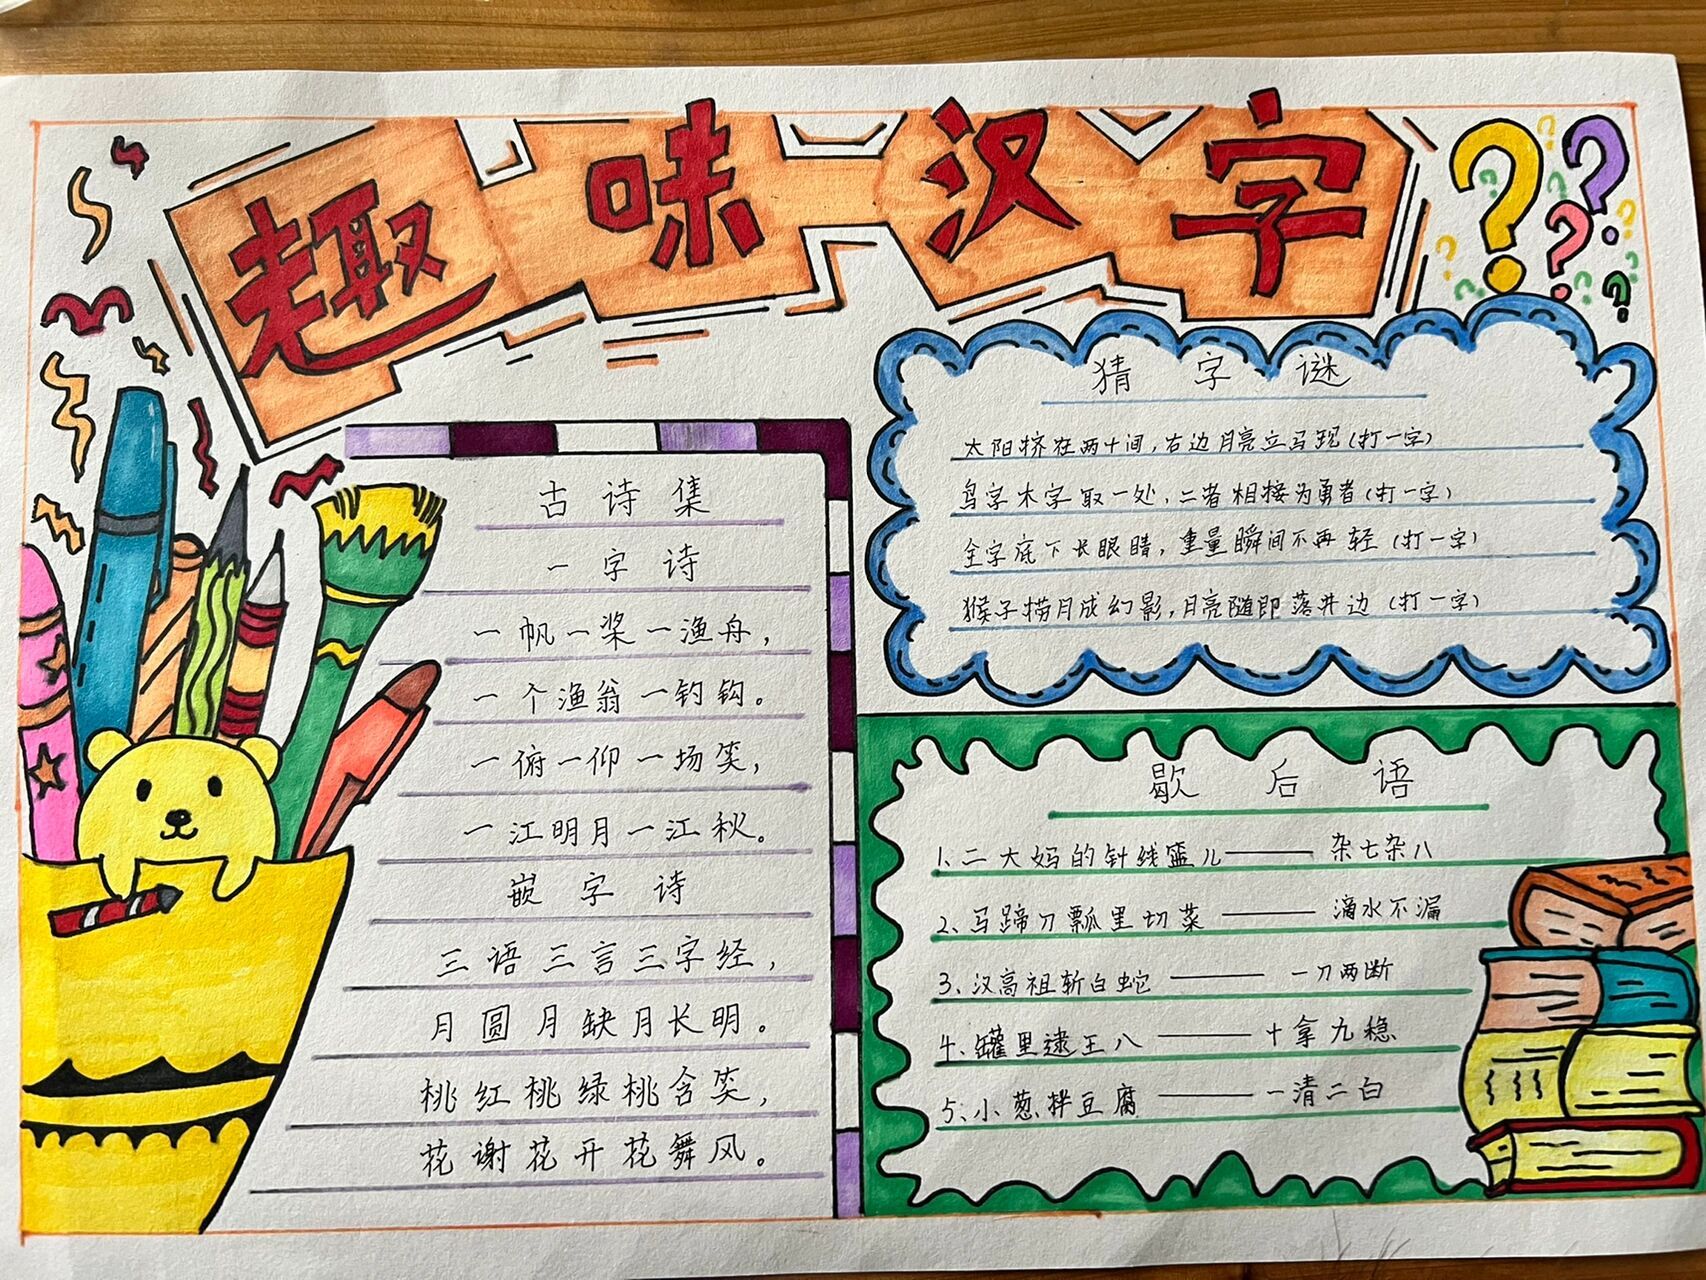 趣味汉字
古诗集
一字诗
一帆一桨一渔舟，
一个渔翁一钓钩。
一俯一仰一场笑，
一江明月一江秋。
嵌字诗
三语三言三字经，
月圆月缺月长明。
桃红桃绿桃含笑，
花谢花开花舞风。
猜字谜
太阳挤在两十间，右边月亮立马现（打一字）
鸟字木字取一处，二者相接为勇者（打一字）
全字底下长眼睛，重量瞬间不再轻（打一字）
猴子捞月成幻影，月亮随即落井边（打一字）
歇后语
1、二大妈的针线筐儿——杂七杂八
2、马蹄刀瓢里切菜——滴水不漏
3、汉高祖斩白蛇——一刀两断
4、罐里逮王八——十拿九稳
5、小葱拌豆腐——一清二白